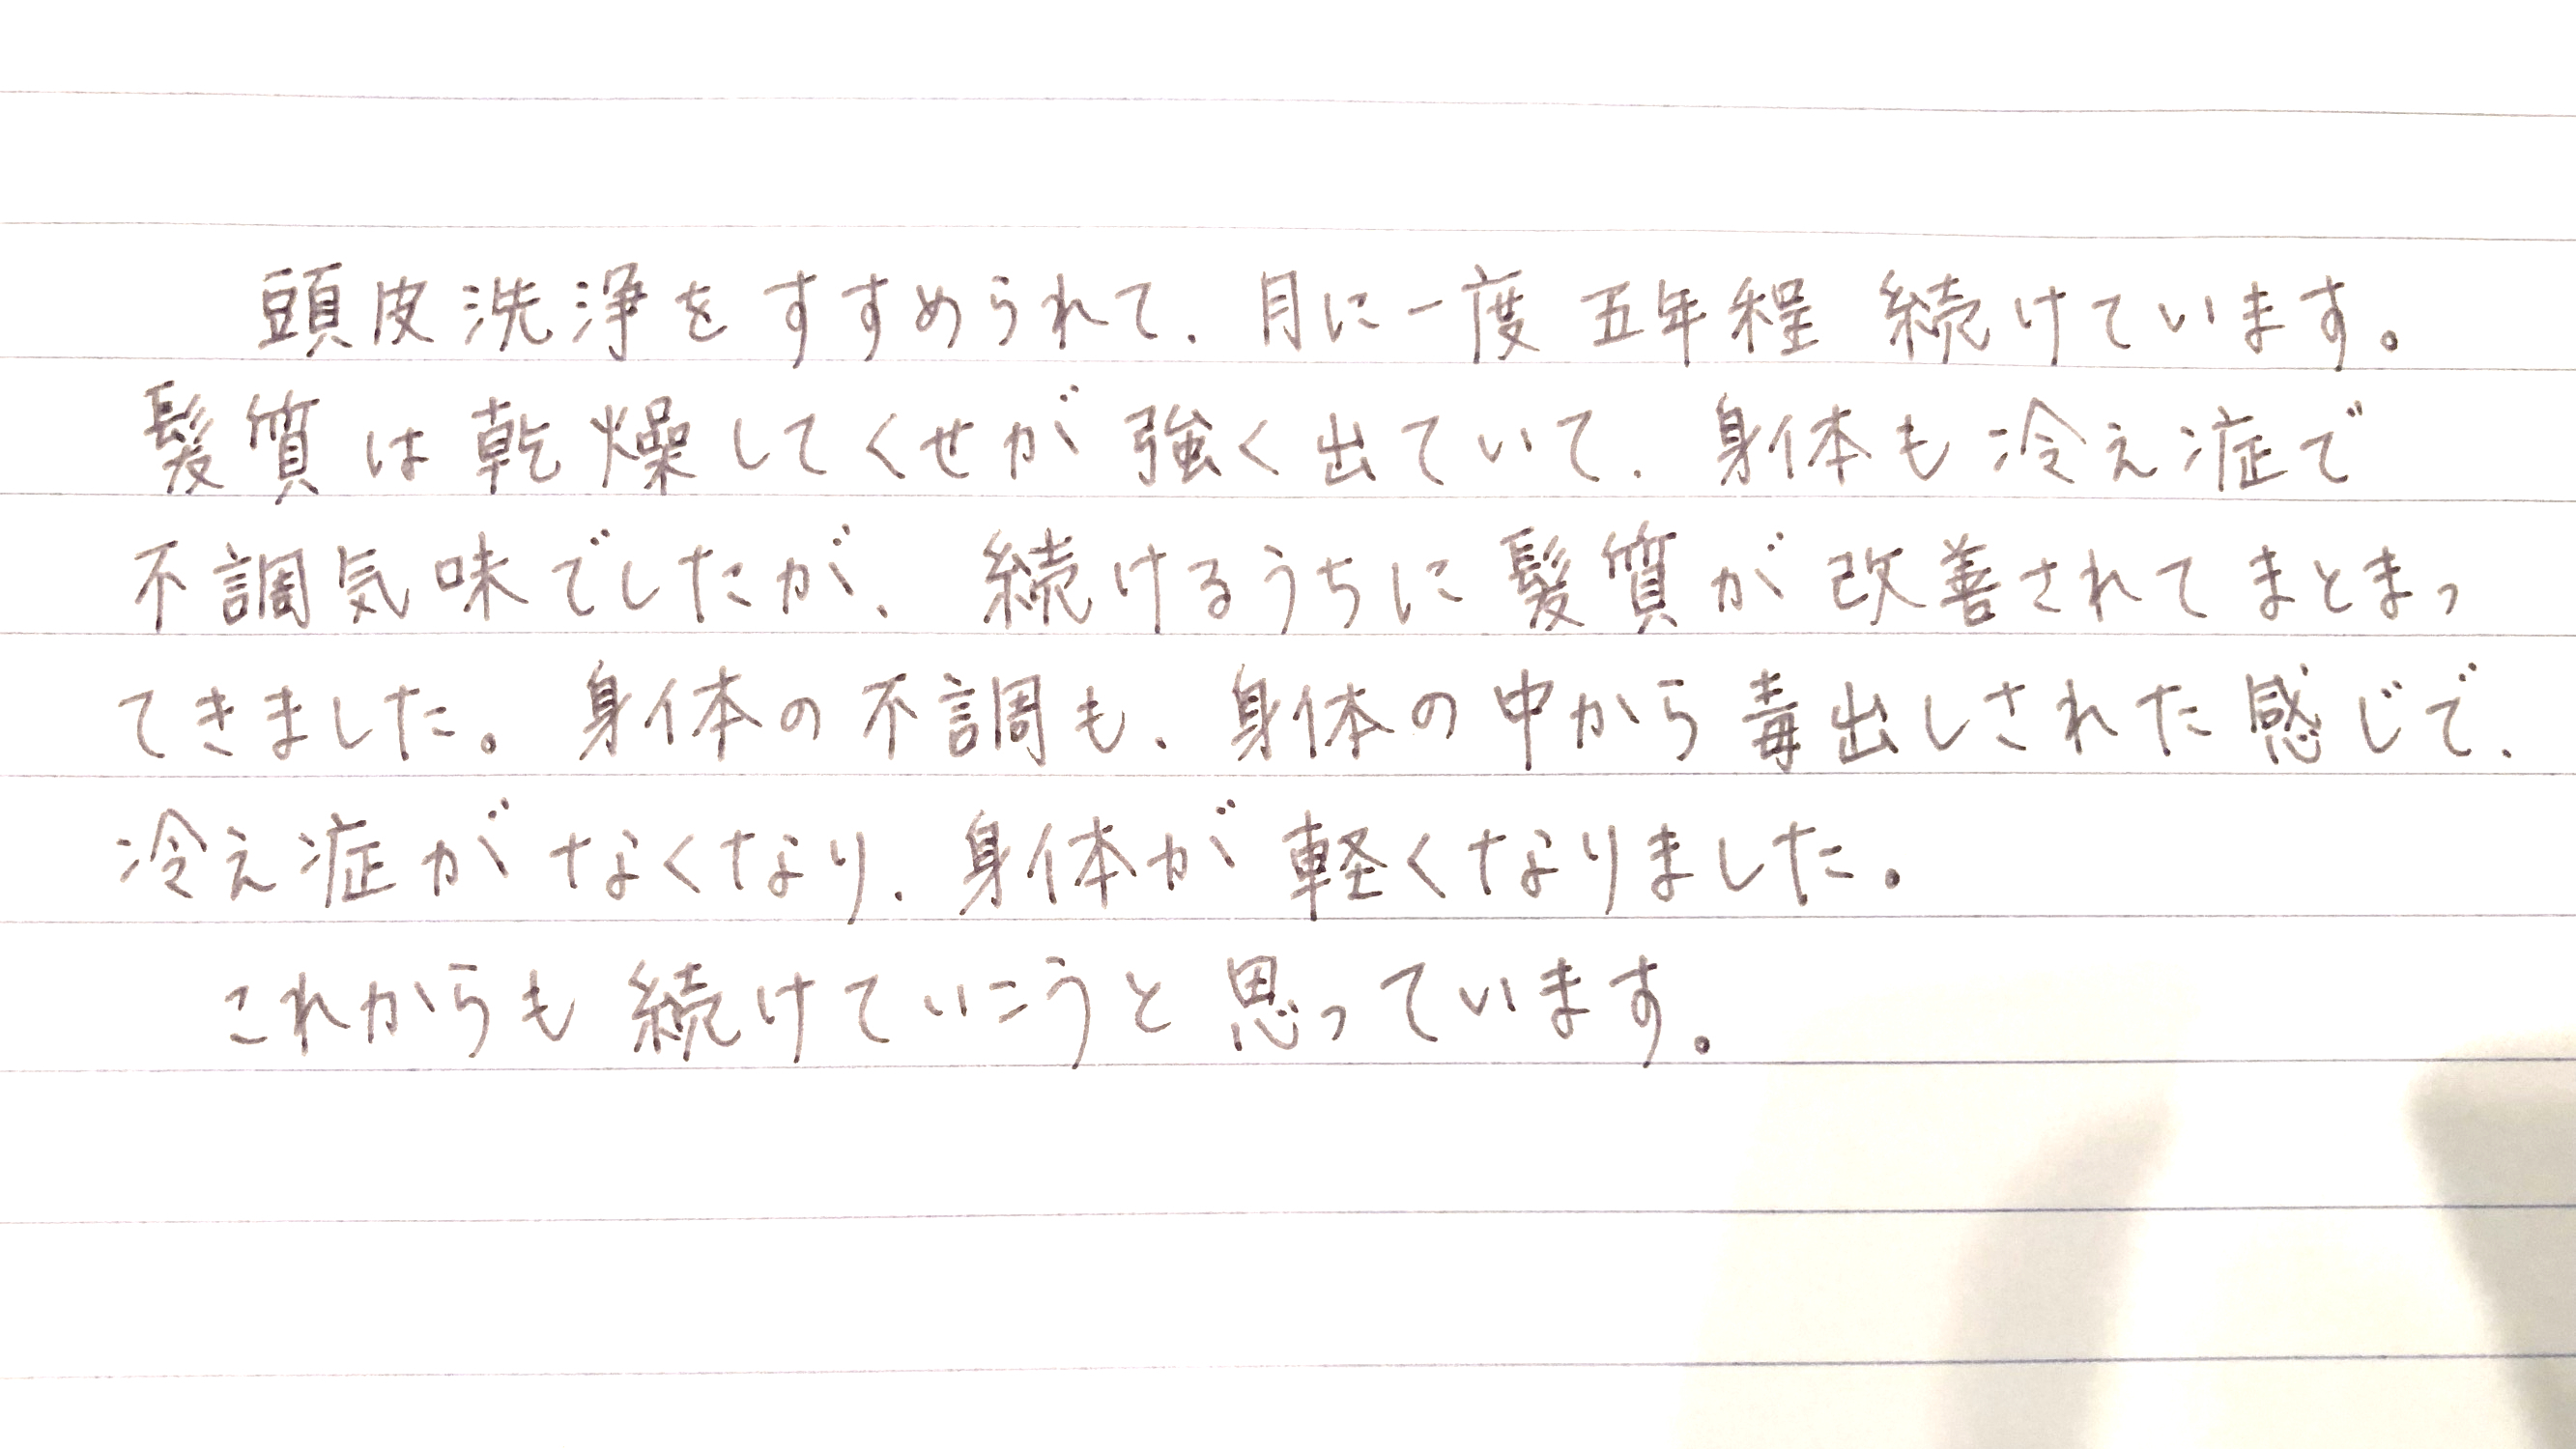 頭皮洗浄をすすめられて、月に一度 五年程 続けています。
髪質は乾燥してくせが強く出ていて、身体も冷え症で
不調気味でしたが、続けるうちに髪質が改善されてまとまっ
てきました。身体の不調も、身体の中から毒出しされた感じで、
冷え症がなくなり、身体が軽くなりました。
これからも続けていこうと思っています。